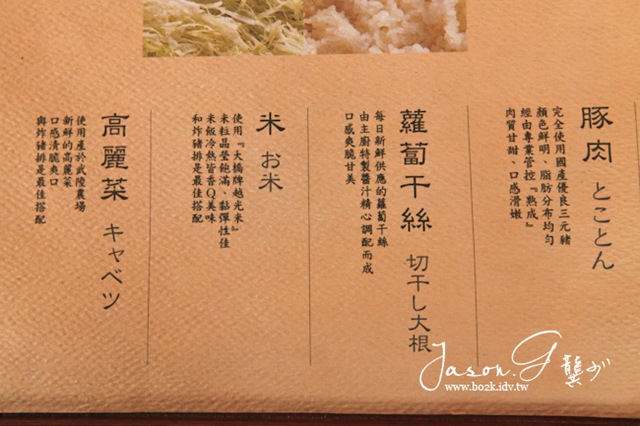 豚肉 とことん
完全使用國產優良三元豬
顏色鮮明、脂肪分布均勻
經由專業管控『熟成』
肉質甘甜、口感滑嫩
蘿蔔干絲 切干し大根
每日新鮮供應的蘿蔔干絲
由主廚特製醬汁精心調配而成
口感爽脆甘美
米 お米
使用『大橋牌越光米』
米粒晶瑩飽滿、黏彈性佳
米飯冷熱皆香Q美味
和炸豬排是最佳搭配
高麗菜 キャベツ
使用產於武陵農場
新鮮的高麗菜
口感清脆爽口
與炸豬排是最佳搭配
Jason.G 龔少
www.bo2k.idv.tw